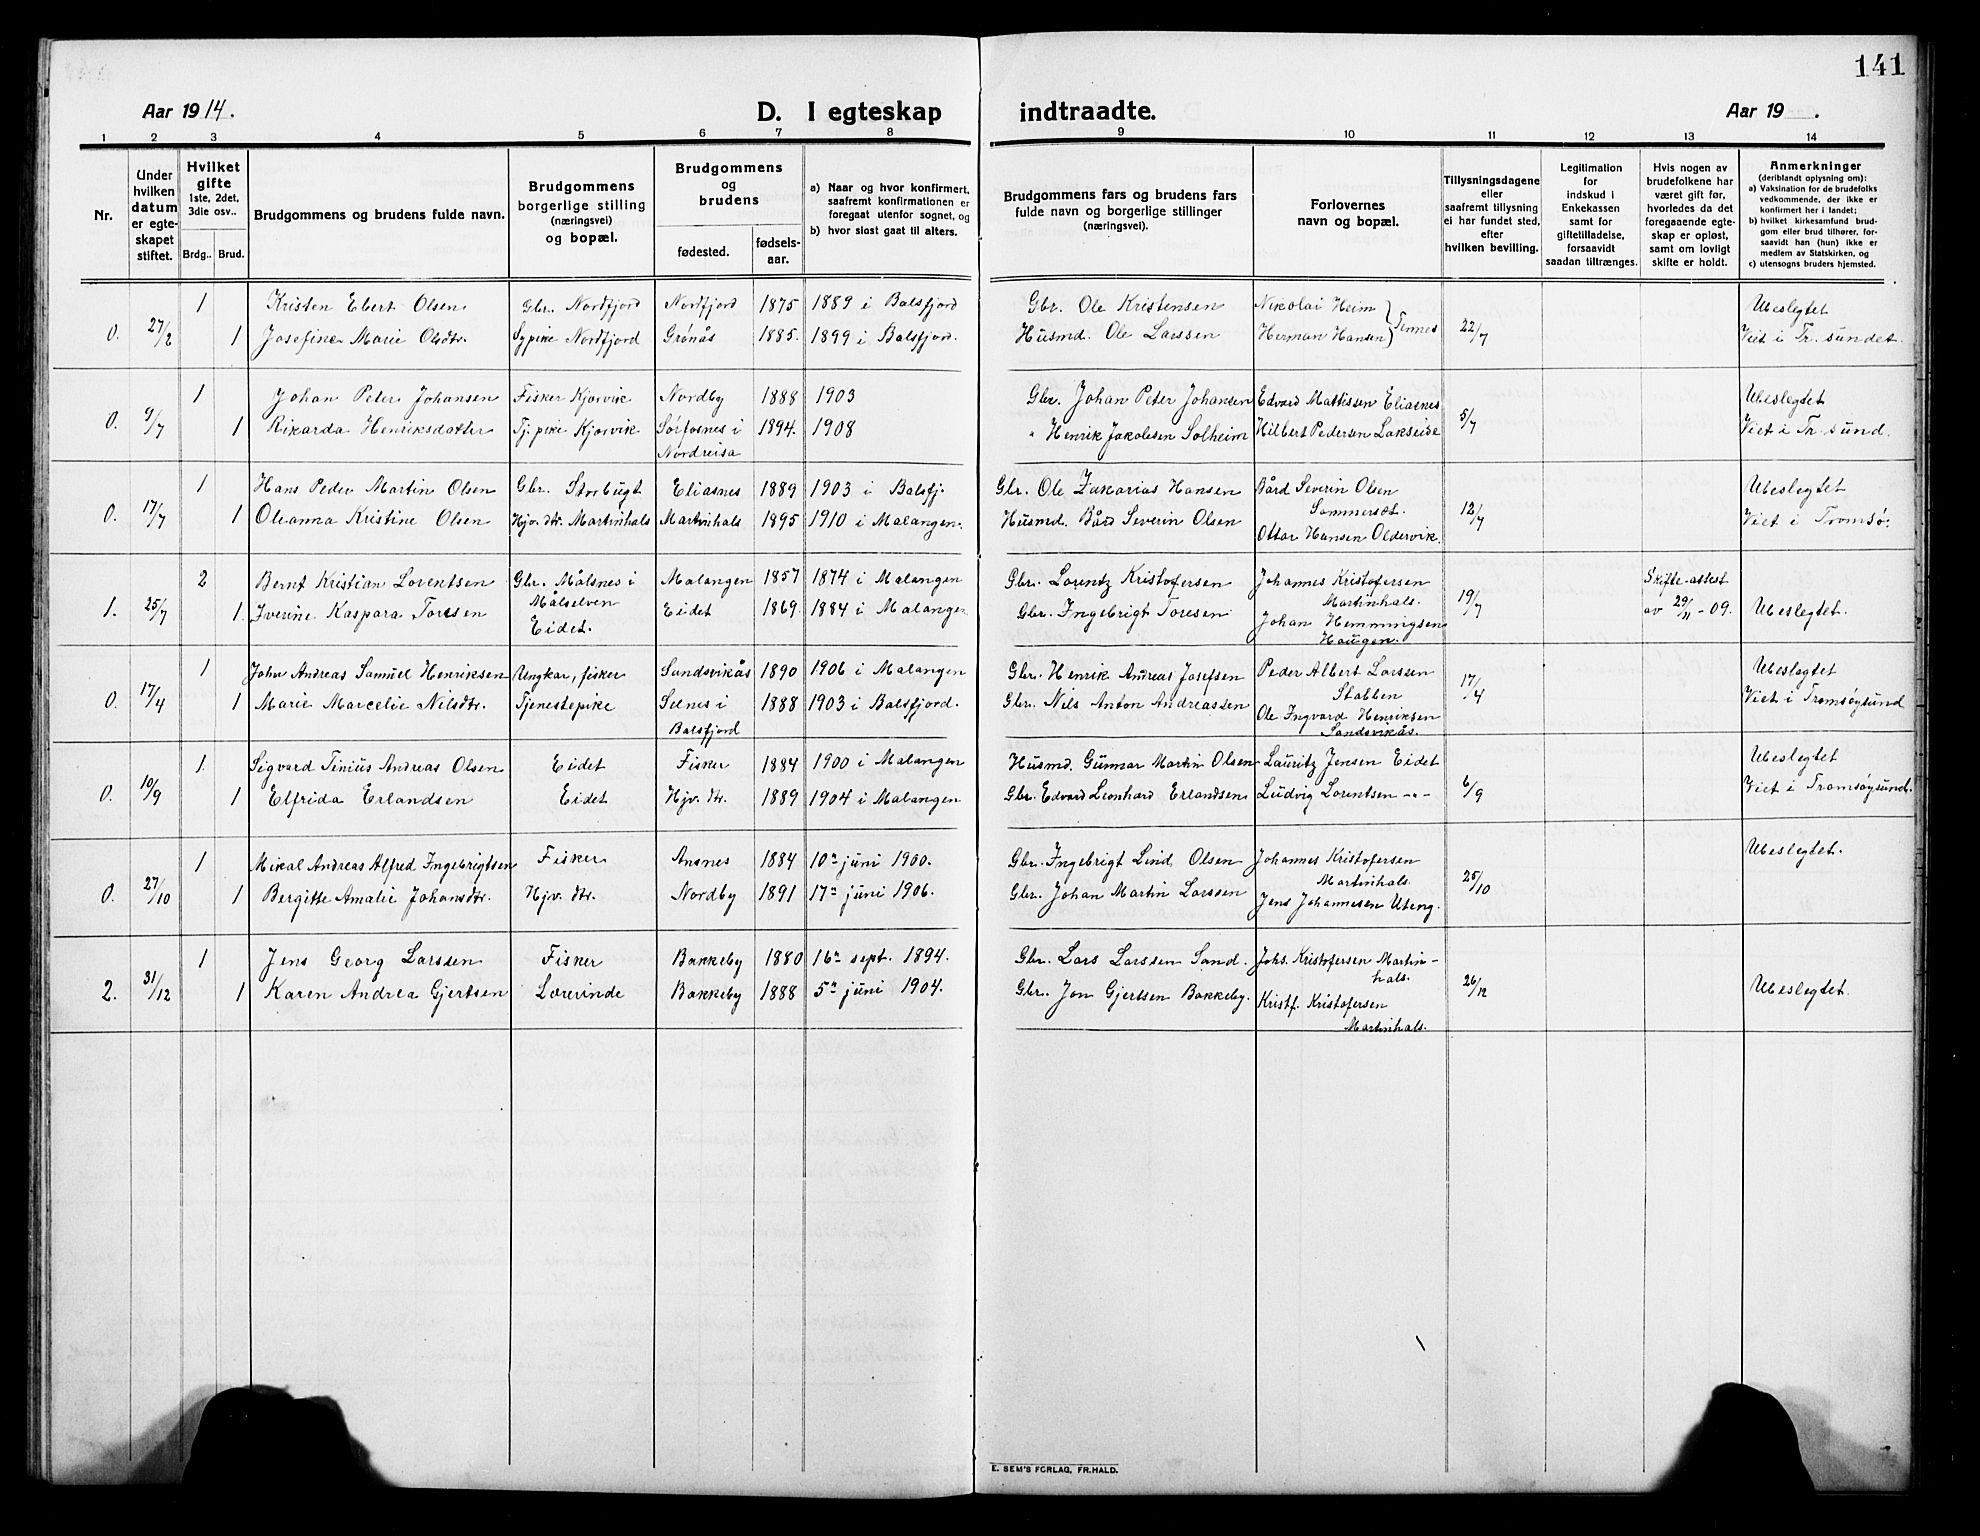 141
Aar 1914.
D. I egteskap indtraadte.
Aar 19 .
1 2 3 4 5 6 7 8 9 10 11 12 13 14
Nr.
Under hvilken datum er egteskapet stiftet.
Hvilket gifte 1ste, 2det, 3die osv..
Brdg.. Brud.
Brudgommens og brudens fulde navn.
Brudgommens borgerlige stilling (næringsvei) og bopæl.
Brudgommens og brudens
fødested. fødsels-aar.
a) Naar og hvor konfirmert, saafremt konfirmationen er foregaat utenfor sognet, og
b) hvor sidst gaat til alters.
Brudgommens fars og brudens fars fulde navn og borgerlige stillinger (næringsvei).
Forlovernes navn og bopæl.
Tillysningsdagene eller saafremt tillysning ei har fundet sted, efter hvilken bevilling.
Legitimation for indskud i Enkekassen samt for giftetilladelse, forsaavidt saadan tiltrænges.
Hvis nogen av brudefolkene har været gift før, hvorledes da det foregaaende egteskap er opløst, samt om lovligt skifte er holdt.
Anmerkninger (deriblandt oplysning om):
a) Vaksination for de brudefolks vedkommende, der ikke er konfirmert her i landet;
b) hvilket kirkesamfund brudgom eller brud tilhører, forsaavidt han (hun) ikke er medlem av Statskirken, og
c) utensogns bruders hjemsted.
1 Kristen Ebert Olsen Gbr. Nordfjord Nordfjord 1875 1889 i Balsfjord Gbr. Ole Kristensen Nikolai Heim } Temnes Ubeslegtet
0. 27/2 1 Josefine Marie Olsdtr. Sypike Nordfjord Grønås 1885. 1899 i Balsfjord. Husmd. Ole Larssen Herman Hansen 22/7 Viet i Tr. sundet.
1 Johan Peter Johansen Fisker Kjorvik Nordby 1888 1903 Gbr. Johan Peter Johansen Edvard Mattissen Eliasnes Ubeslegtet
0. 9/7 1 Rikarda Henriksdatter Tj. pike Kjorvik Sørfosnes i 1894. 1908 " Henrik Jakobsen Solheim Hilbert Pedersen Lakseide 5/7 Viet i Tr. sund.
Nordreisa
1 Hans Peder Martin Olsen Gbr. Storbugt Eliasnes 1889 1903 i Balsfj. Gbr. Ole Zakarias Hansen Bård Severin Olsen Ubeslegtet
Sommersæt.
0. 17/7 1 Oleanna Kristine Olsen Hjv. dtr. Martinhals Martinhals 1895 1910 i Malangen. Husmd. Bård Severin Olsen 12/7 Viet i Tromsø.
Ottar Hansen Oldervik.
2 Bernt Kristian Lorentsen Gbr. Målsnes i Malangen 1857 1874 i Malangen Gbr. Lorentz Kristofersen Johannes Kristofersen Skifte-attest
Målselven Martinhals.
1. 25/7 1. Iverine Kaspara Toresen Eidet. Eidet 1869. 1884 i Malangen Gbr. Ingebrigt Toresen Johan Hemmingsen 19/7 av 29/11 - 09. Ubeslegtet.
Haugen.
1 John Andreas Samuel Henriksen Ungkar, fisker Sandsvikås 1890 1906 i Malangen Gbr. Henrik Andreas Josefsen Peder Albert Larssen Ubeslegtet
Stabben
0. 17/4 1 Marie Marcelie Nilsdtr. Tjenestepike Selnes i 1888 1903 i Balsfjord. Gbr. Nils Anton Andreassen Ole Ingvard Henriksen 17/4 Viet i Tromsøysund
Balsfjord Sandsvikås.
1. Sigvard Tinius Andreas Olsen Eidet Fisker 1884 1900 i Malangen Husmd. Gunnar Martin Olsen Lauritz Jensen Eidet Ubeslegtet
0. 10/9 1 Elfrida Erlandsen Eidet Hjv. dtr. 1889 1904 i Malangen Gbr. Edvard Leonhard Erlandsen Ludvig Lorentsen -"- 6/9 Viet i Tromsøysund.
1 Mikal Andreas Alfred Ingebrigtsen Fisker Ansnes 1884 10de juni 1900. Gbr. Ingebrigt Lind Olsen Johannes Kristofersen Ubeslegtet.
Martinhals.
0. 27/10 1 Bergitte Amalie Johansdtr. Hjv. dtr. Nordby 1891 17de juni 1906. Gbr. Johan Martin Larssen Jens Johannesen Uteng. 25/10
1 Jens Georg Larssen Fisker Bakkeby 1880 16de sept. 1894. Gbr. Lars Larssen Sand. Johs. Kristofersen Martin-
hals.
2. 31/12 1 Karen Andrea Gjertsen Lærerinde Bakkeby 1888 5te juni 1904. Gbr. Jon Gjertsen Bakkeby. Kristf. Kristofersen 26/12 Ubeslegtet.
Martinhals.
E. SEM'S FORLAG, FR.HALD.